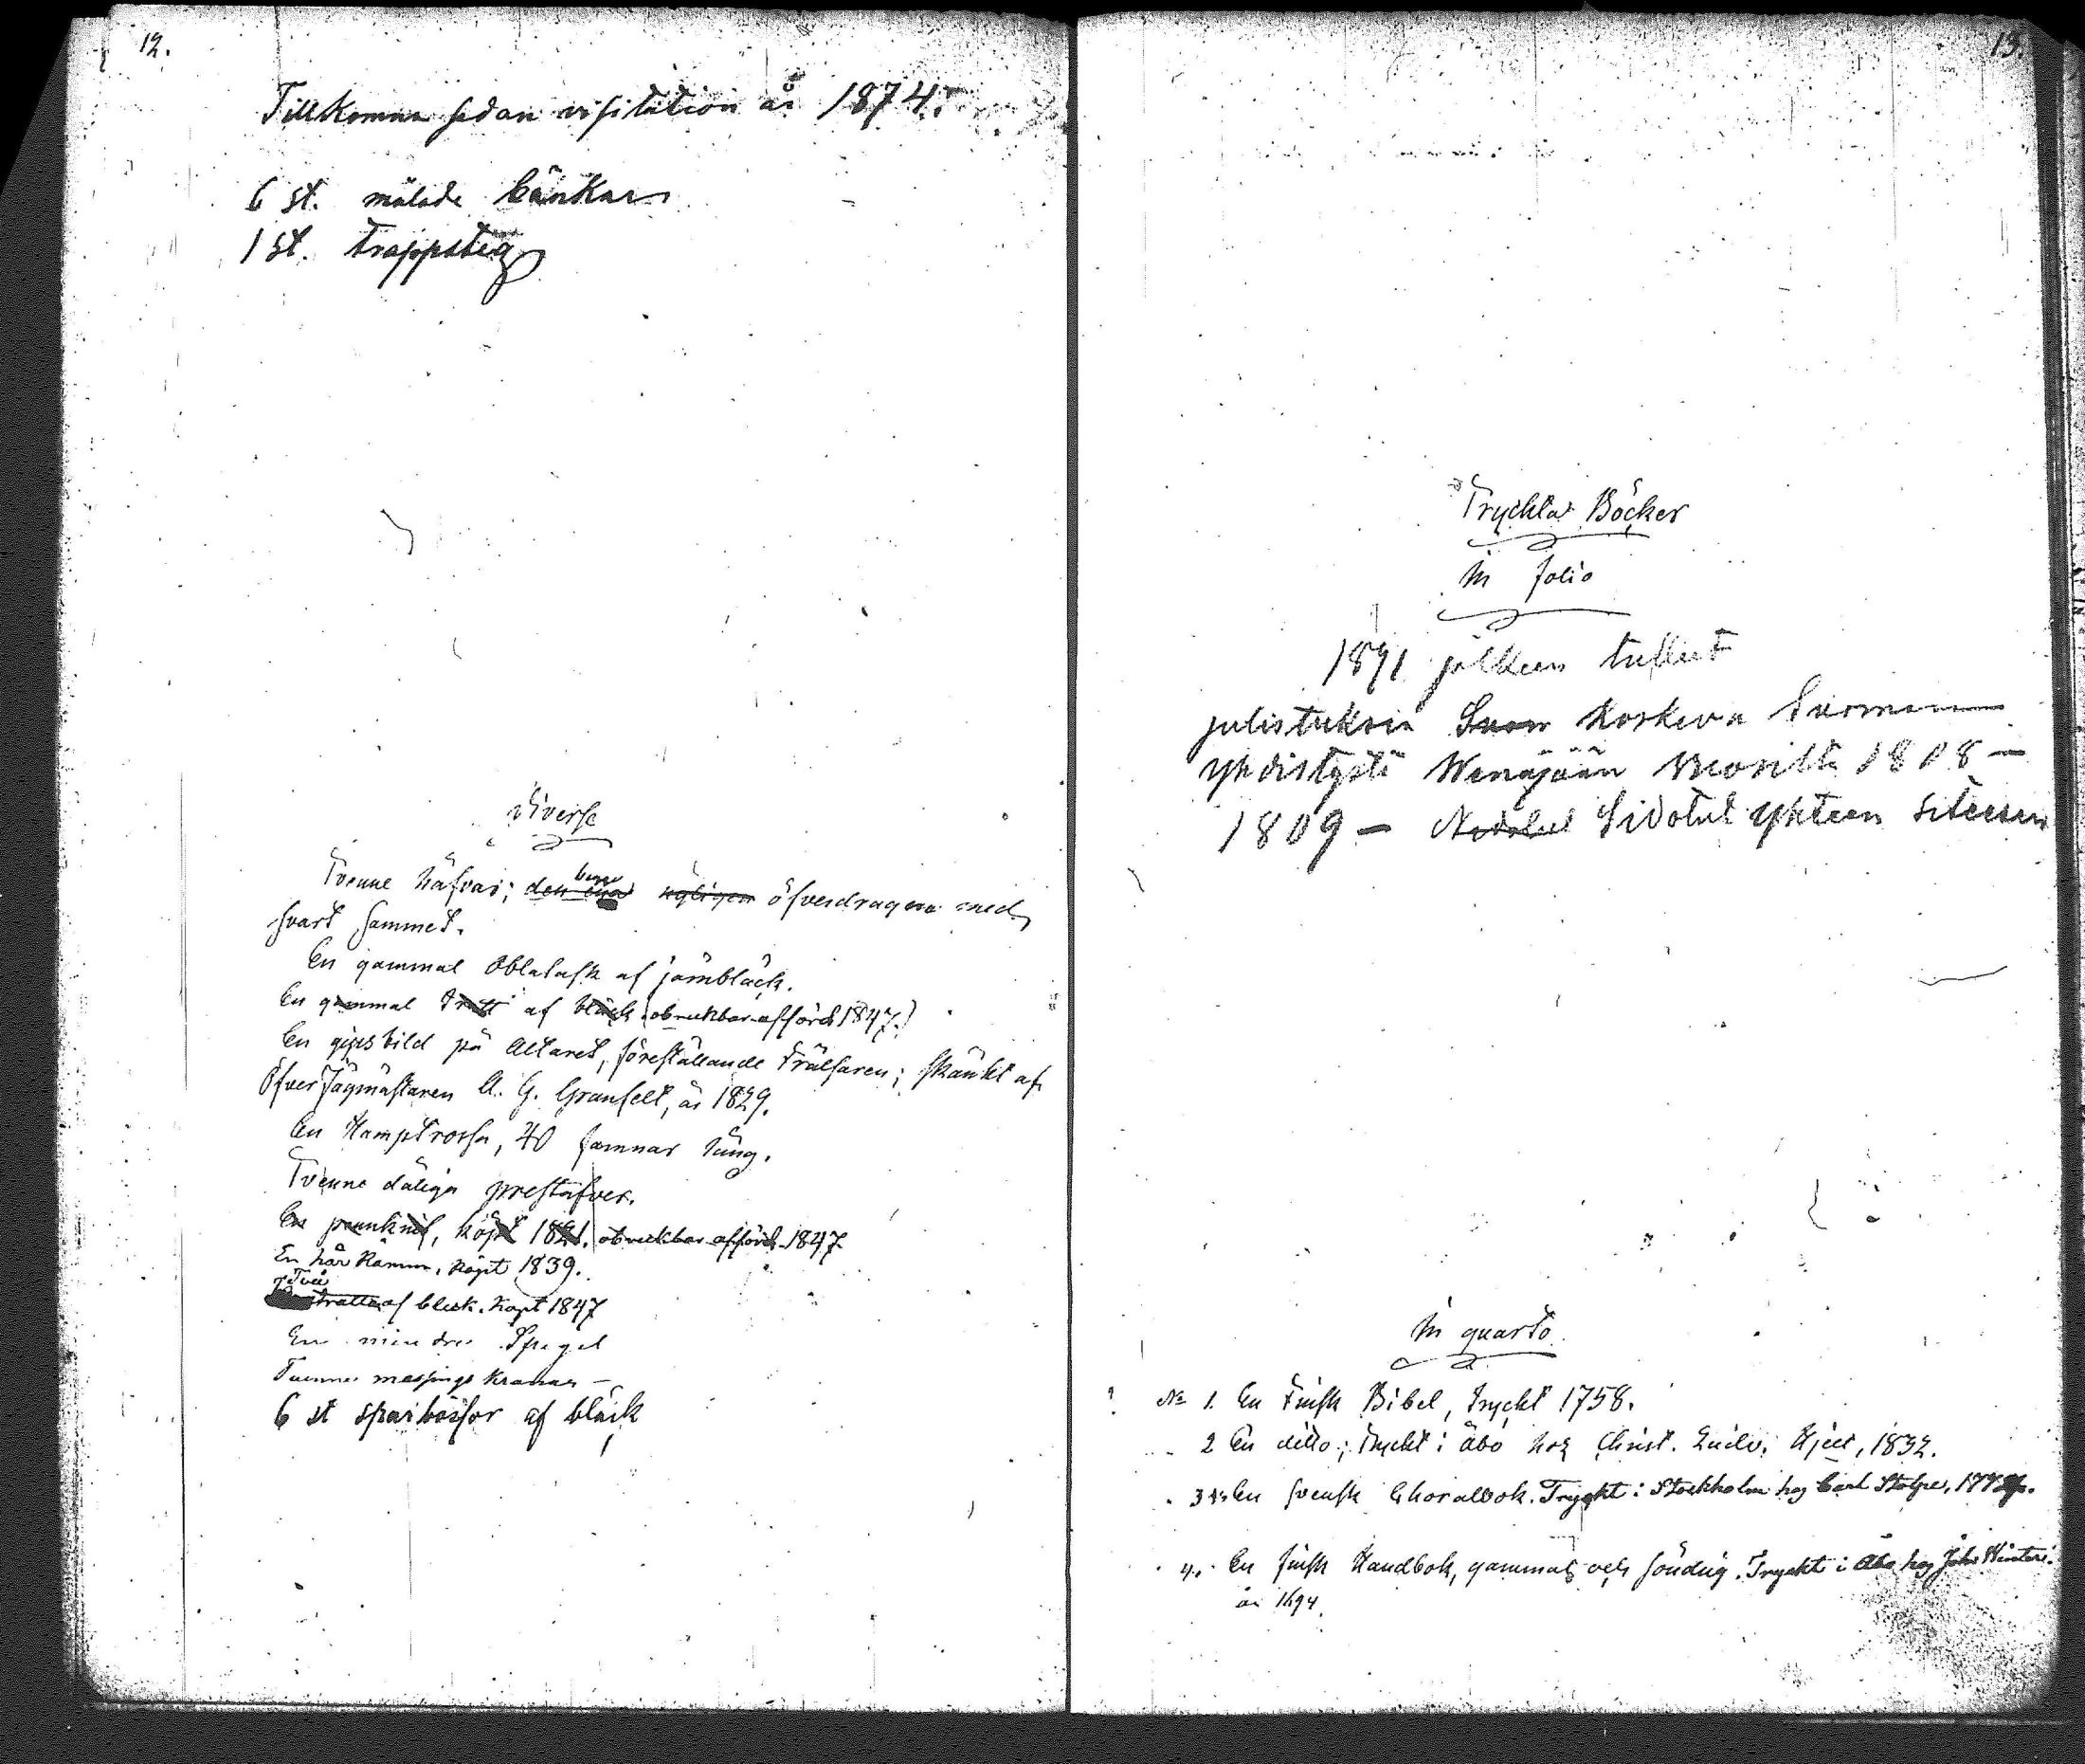 12.
Tillkomna sedan visitation år 1874.
6 st. målade bänkar
1 st. trappsteg
Diverse
Tvenne håfvar; den ena nyligen öfverdragna med
svart sammet.
En gammal Oblatask af järnbläck.
En gammal tratt af bläck (obrukbar afförd 1847.)
En gipsbild på Altaret, föreställande Frälsaren; skänkt af
ÖfverJägmästaren A. G. Granfelt, år 1829.
En Hamptrossa, 40 famnar lång.
Tvenne dåliga prestafver.
En pennknif, köpt 1821. obrukbar afförd 1847
En hår kamm, köpt 1839.
Två
trattar af bleck. Köpt 1847
En mindre Spegel
Tvenne messings kranar –
6 st sparbössor af bläck
13.
Tryckta Böcker
in folio
1891 jälkeen tulleet
julistuksia Suom koskeva Suomen
yhdistystä Wenäjään vuosilta 1808 –
1809 – Sidotut yhteen siteesen
in quarto
№ 1. En Finsk Bibel, tryckt 1758.
2 En ditto; tryckt i Åbo hos Christ. Ludv. Hjelt, 1832.
3 En svensk Choralbok. Tryckt i Stockholm hos Carl Stolpe,
4. En finsk Handbok, gammal och söndrig. Tryckt i Åbo hos Joh. Winter.
år 1694.